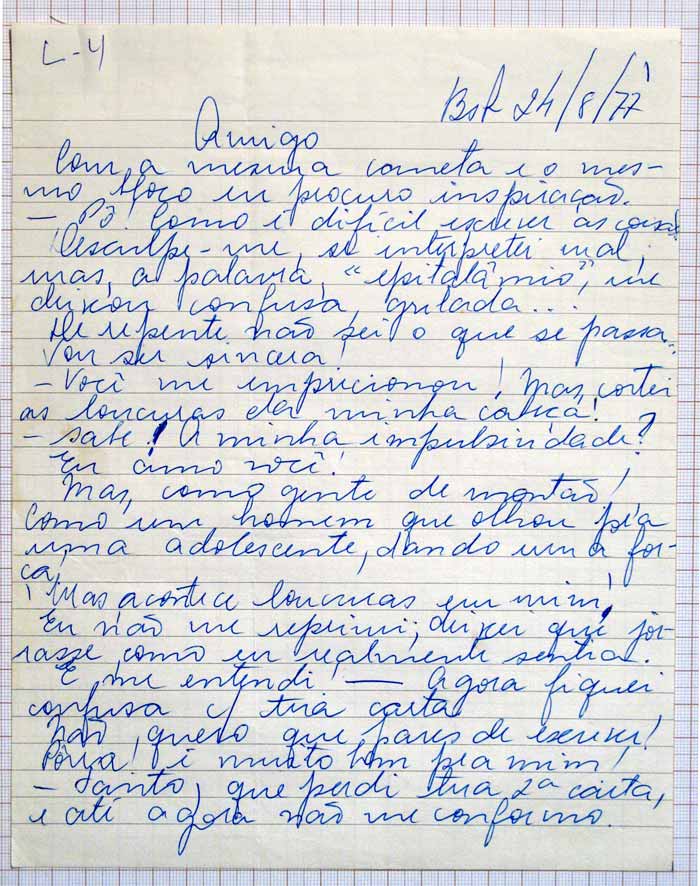 L-4
BsR 24/8/77
Amigo
Com a mesma caneta e o mes-
mo bloco eu procuro inspiração.
— Pô! Como é difícil escrever as coisas!
Desculpe-me, se interpretei mal,
mas, a palavra, "epitalâmio", me
deixou confusa, grilada...
De repente não sei o que se passa.
Vou ser sincera!
— Você me impricionou! Mas, cortei
as loucuras da minha cabeça!
— Sabe! A minha impulsividade?
Eu amo você!
Mas, como gente de montão!
Como um homem que olhou p/a
uma adolescente, dando uma for-
ça,
! Mas acontece loucuras em mim,
Eu não me reprimi; deixei que jor-
rasse como eu realmente sentia.
E me entendi — Agora fiquei
confusa c/ tua carta
Não, quero que pares de escrever!
Pôrra! é muito bom pra mim!
— Tanto, que perdi tua 2ª carta,
e até agora não me conformo.